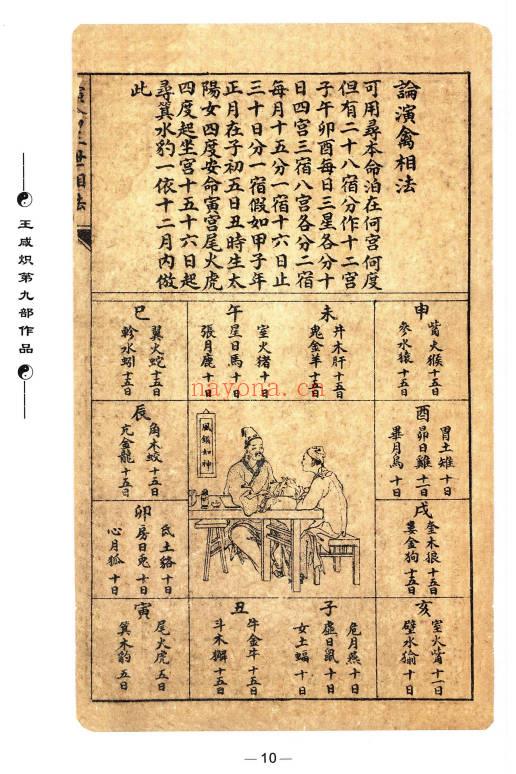 論演禽相法
可用尋本命泊在何宮何度
但有二十八宿分作十二宮
子午卯酉每日三星各分十
日四宮三宿八宮各分二宿
每月十五分一宿十六日止
三十日分一宿假如甲子年
正月在子初五日丑時生太
陽女四度安命寅宮尾火虎
四度起坐宮十五十六日起
尋箕水豹一依十二月內倣
此
申
觜火猴十五日
參水猿十五日
未
井木犴十五日
鬼金羊十五日
午
室火猪十日
星日馬十日
張月鹿十日
巳
翼火蛇十五日
軫水蚓十五日
辰
角木蛟十五日
亢金龍十五日
酉
胃土雉十日
昴日雞十一日
畢月烏十日
戌
奎木狼十五日
婁金狗十五日
卯
氐土貉十日
房日兎十日
心月狐十日
風鑑如神
亥
室火觜十一日
壁水㺄十日
子
危月燕十日
虛日鼠十日
女土蝠十日
丑
牛金牛十五日
斗木獬十五日
寅
尾火虎五日
箕木豹五日
王咸炽第九部作品
nayona.cn
—10—